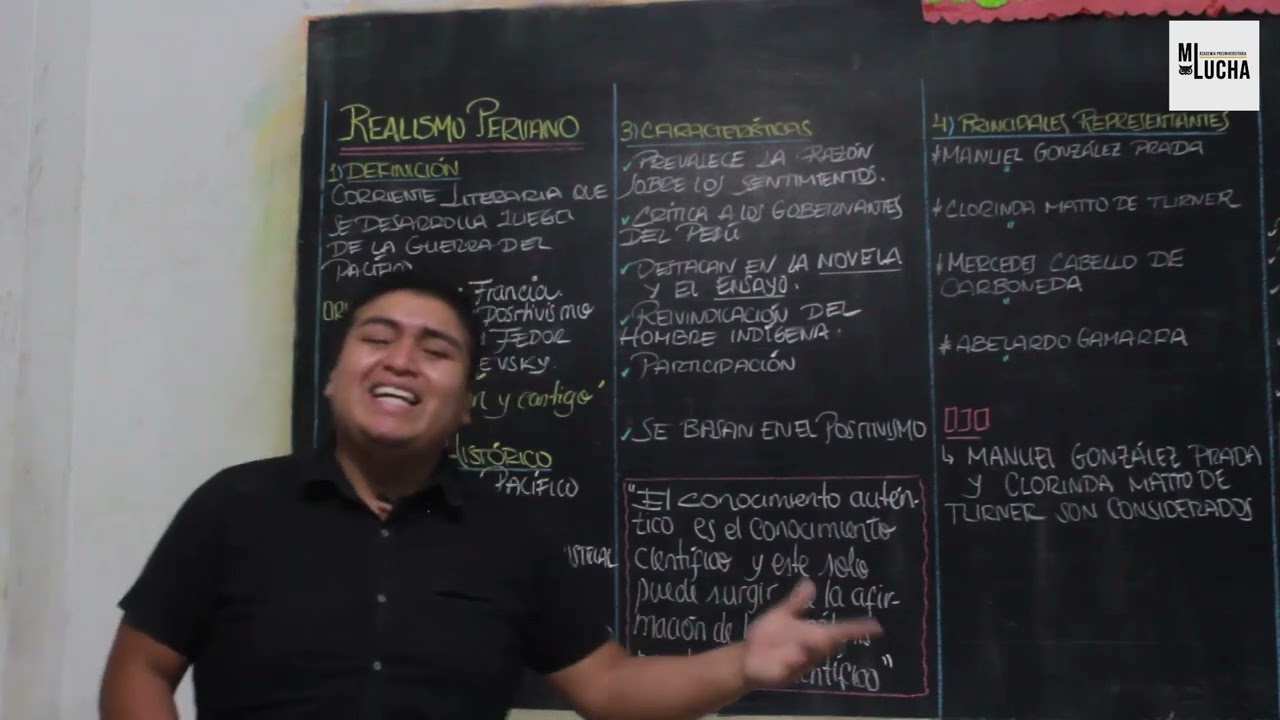 MI LUCHA
ACADEMIA PREUNIVERSITARIA
REALISMO PERUANO
1) DEFINICIÓN
CORRIENTE LITERARIA QUE
SE DESARROLLA LUEGO
DE LA GUERRA DEL
PACÍFICO
Francia.
Positivismo
FEDOR
EVSKY.
y contigo"
HISTÓRICO
PACÍFICO
3) CARACTERÍSTICAS
✓ PREVALECE LA RAZÓN
SOBRE LOS SENTIMIENTOS.
✓ CRÍTICA A LOS GOBERNANTES
DEL PERÚ
✓ DESTACAN EN LA NOVELA
Y EL ENSAYO.
✓ REIVINDICACIÓN DEL
HOMBRE INDÍGENA.
✓ PARTICIPACIÓN
✓ SE BASAN EN EL POSITIVISMO
"El conocimiento autén-
tico es el conocimiento
científico y este solo
puede surgir la afir-
mación de
científico"
4) PRINCIPALES REPRESENTANTES
* MANUEL GONZÁLEZ PRADA
* CLORINDA MATTO DE TURNER
* MERCEDES CABELLO DE
CARBONEDA
* ABELARDO GAMARRA
OJO
↳ MANUEL GONZÁLEZ PRADA
Y CLORINDA MATTO DE
TURNER SON CONSIDERADOS